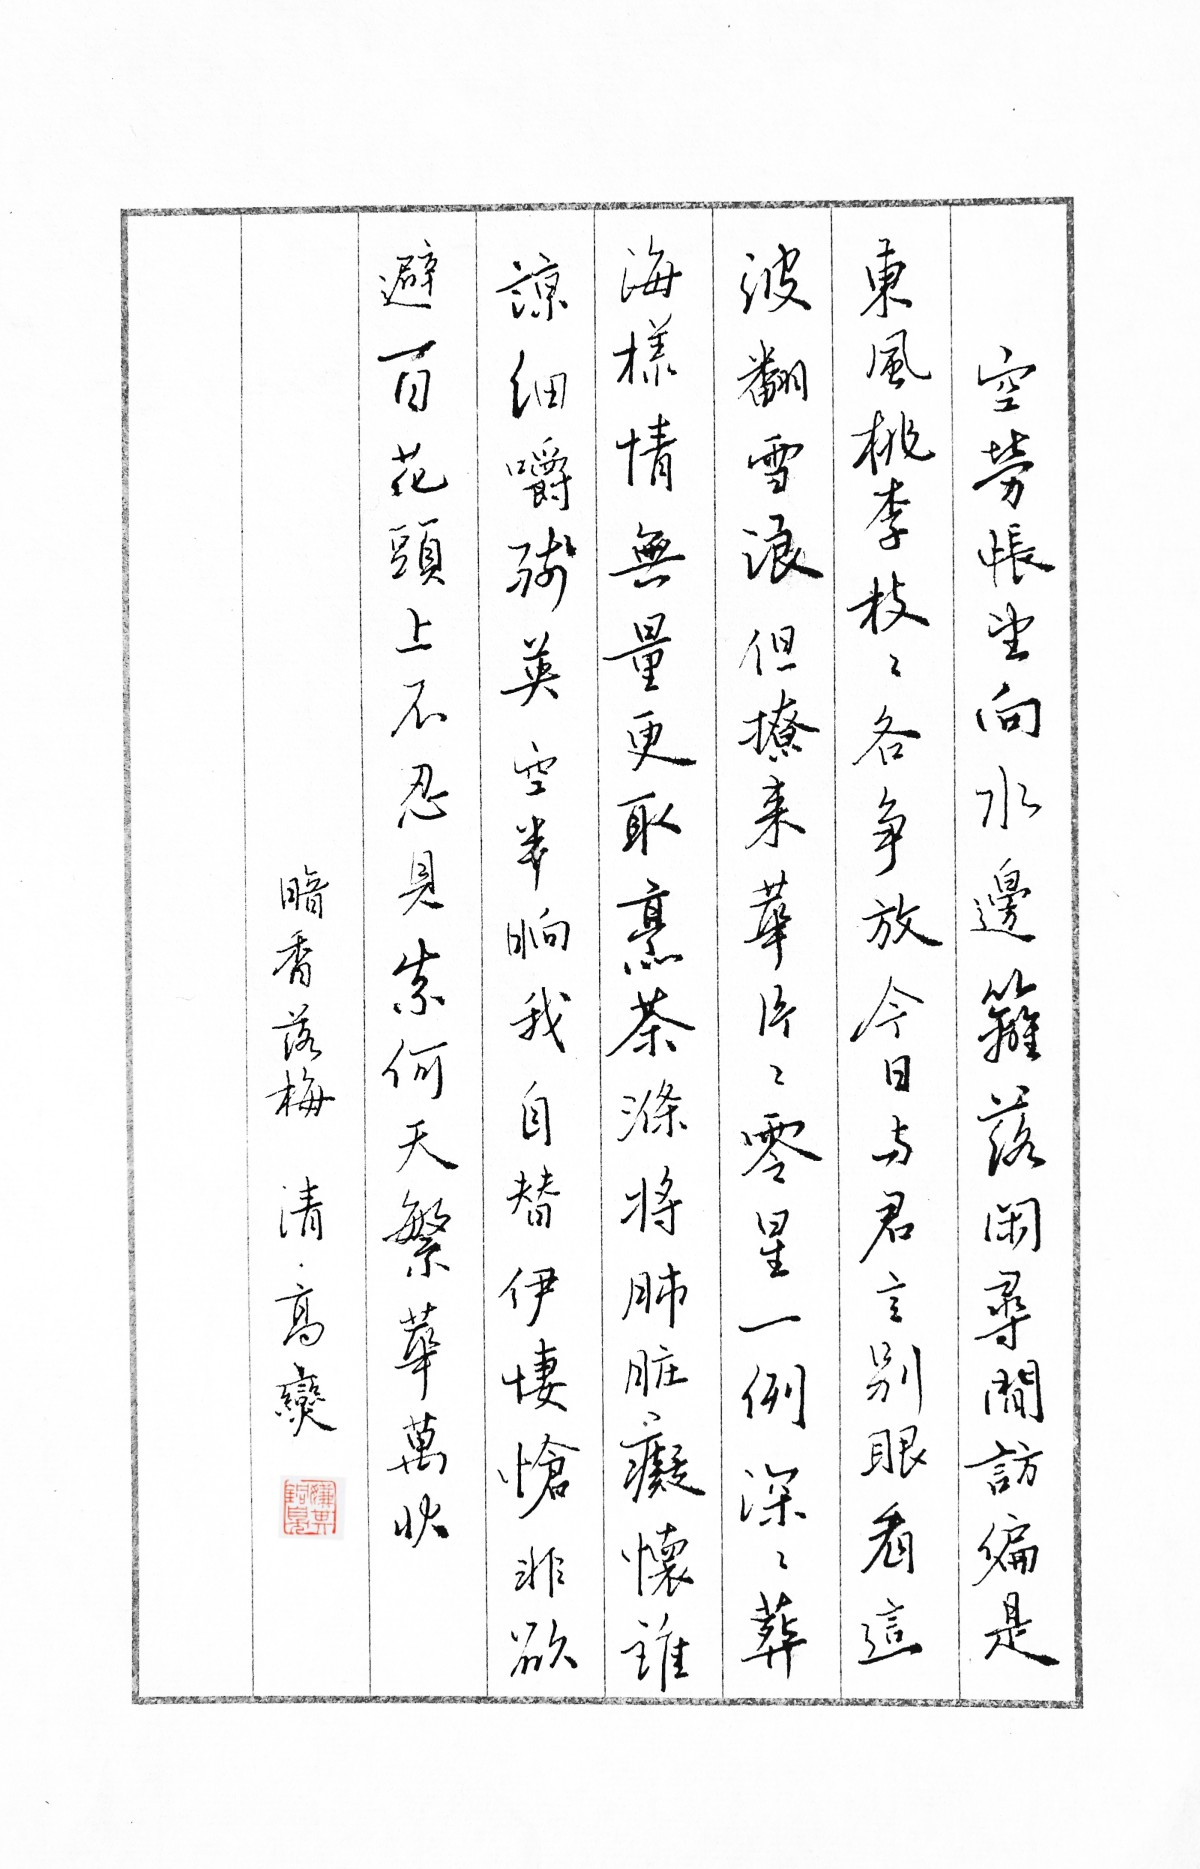 空勞悵望向水邊籬落閑尋閒訪偏是
東風桃李枝〻各爭放今日与君言别眼看這
波翻雪浪但撩来華片〻零星一例深〻葬
海樣情無量更取熹茶滌将肺脏癡懷誰
諒細嚼殘英空半晌我自替伊悽愴非欲
避百花頭上不忍見柰何天繁華萬状
暗香落梅 清·高燮